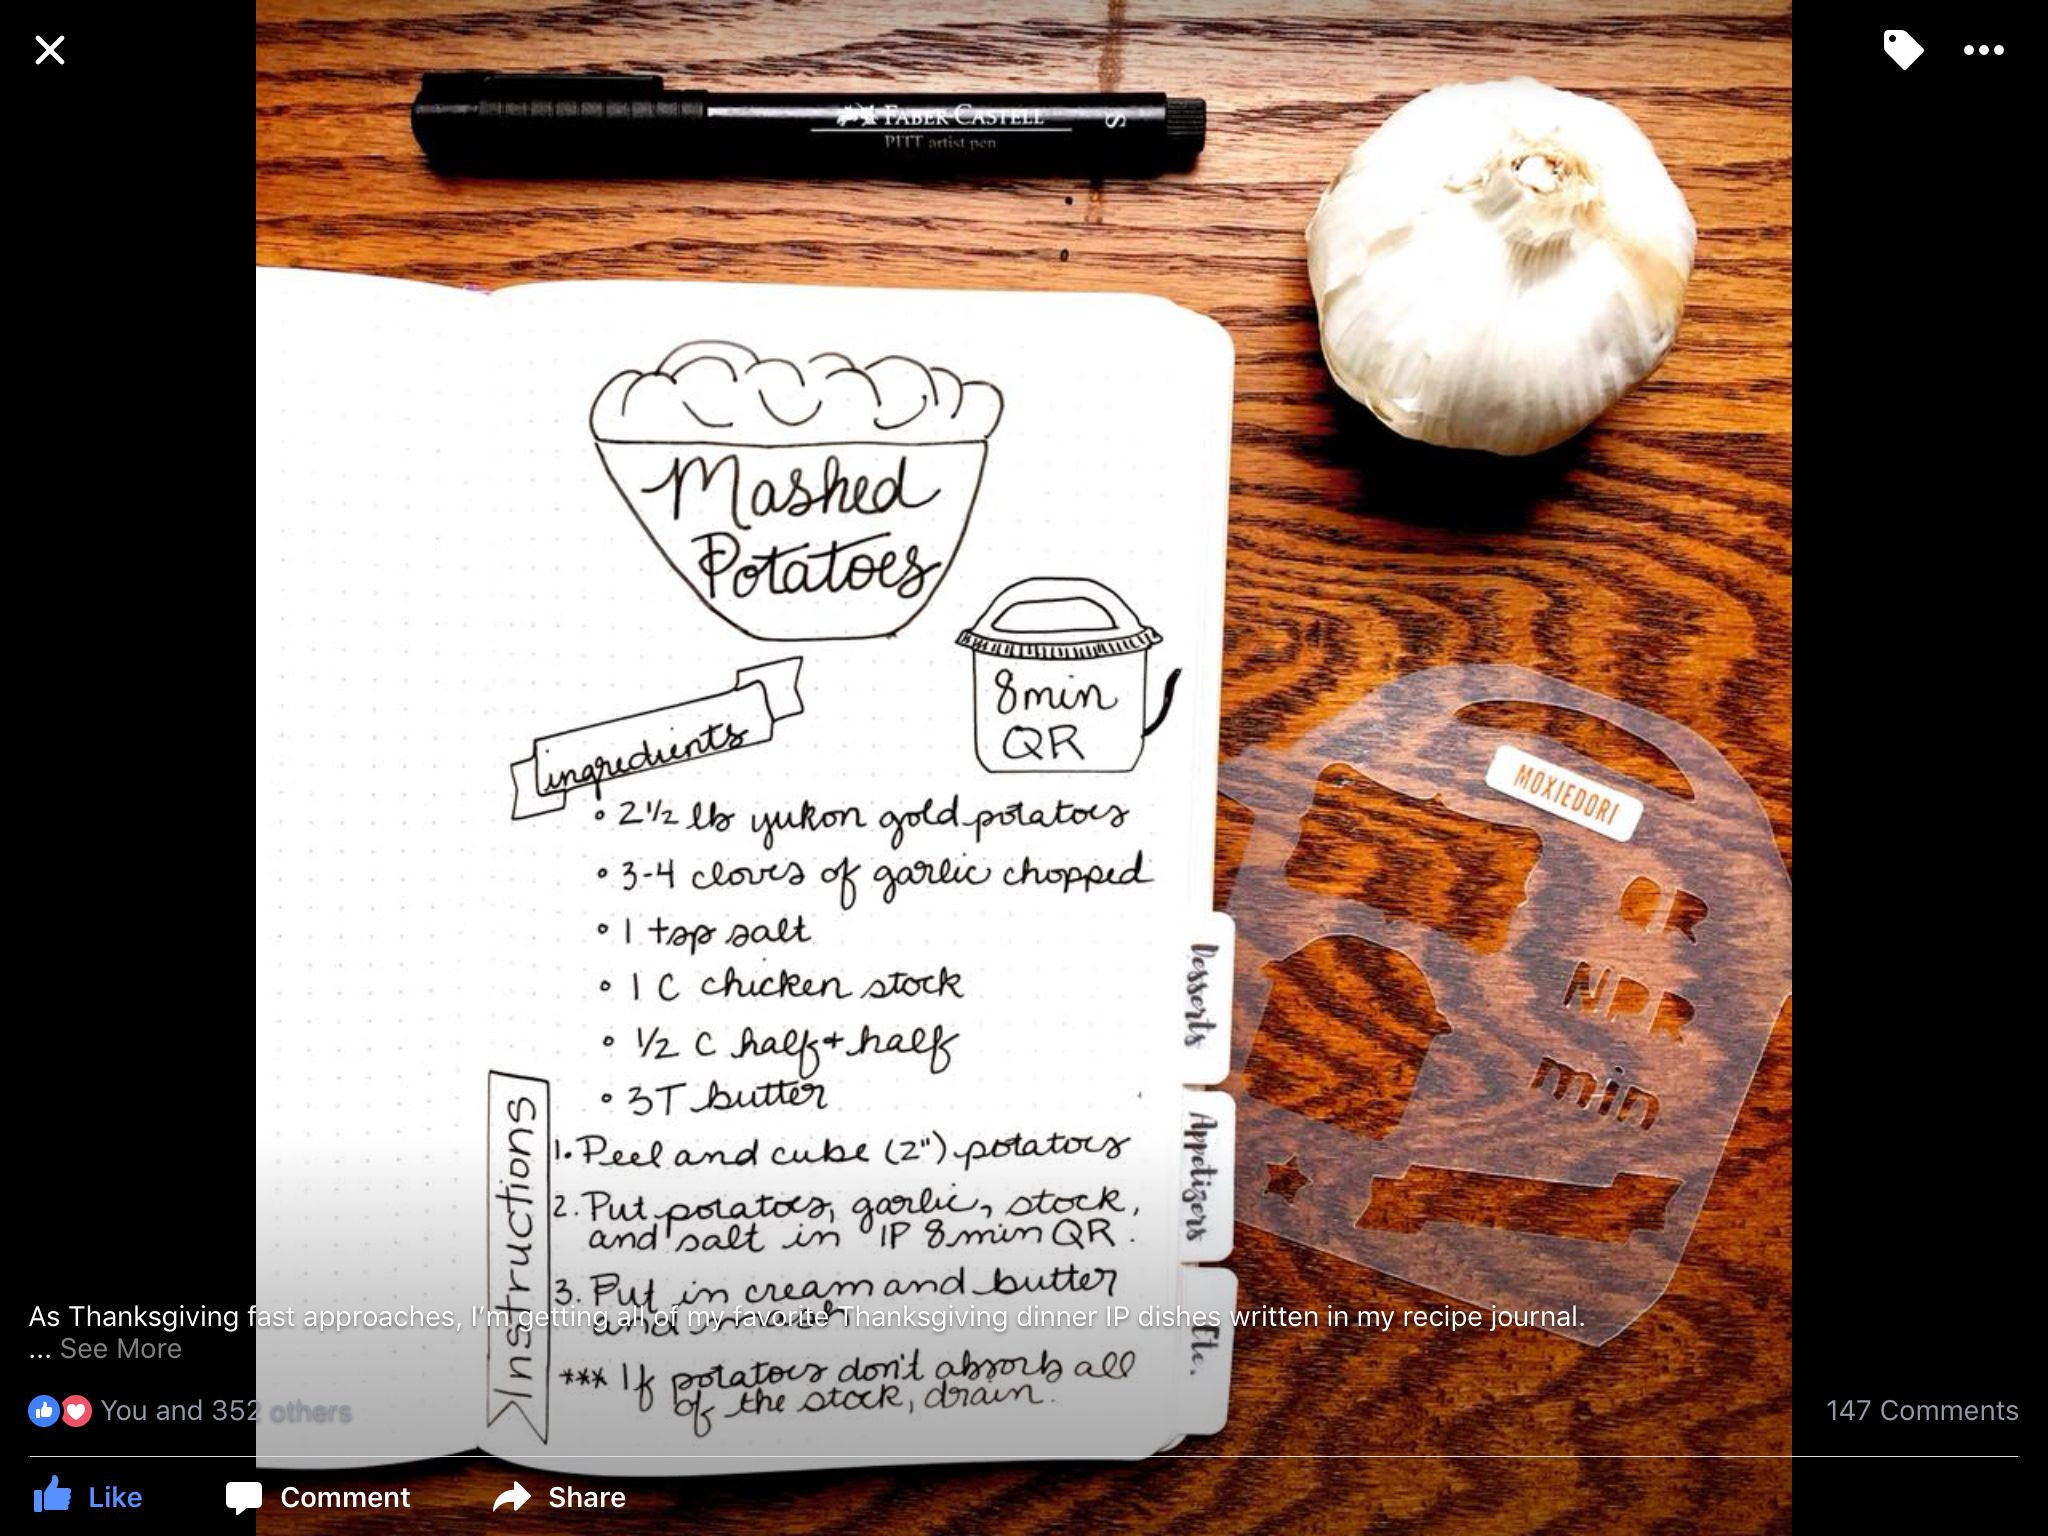 FABER CASTELL
PITT artist pen
S
Mashed
Potatoes
8min
QR
ingredients
2 1/2 lb yukon gold potatoes
3-4 cloves of garlic chopped
1 tsp salt
1 C chicken stock
1/2 C half + half
3T butter
Instructions
1. Peel and cube (2") potatoes
2. Put potatoes, garlic, stock,
and salt in IP 8 min QR.
3. Put in cream and butter
and mash
*** If potatoes don't absorb all
of the stock, drain.
Desserts
Appetizers
Etc.
MOXIEDORI
QR
NPR
min
As Thanksgiving fast approaches, I'm getting all of my favorite Thanksgiving dinner IP dishes written in my recipe journal.
... See More
You and 352 others
147 Comments
Like
Comment
Share